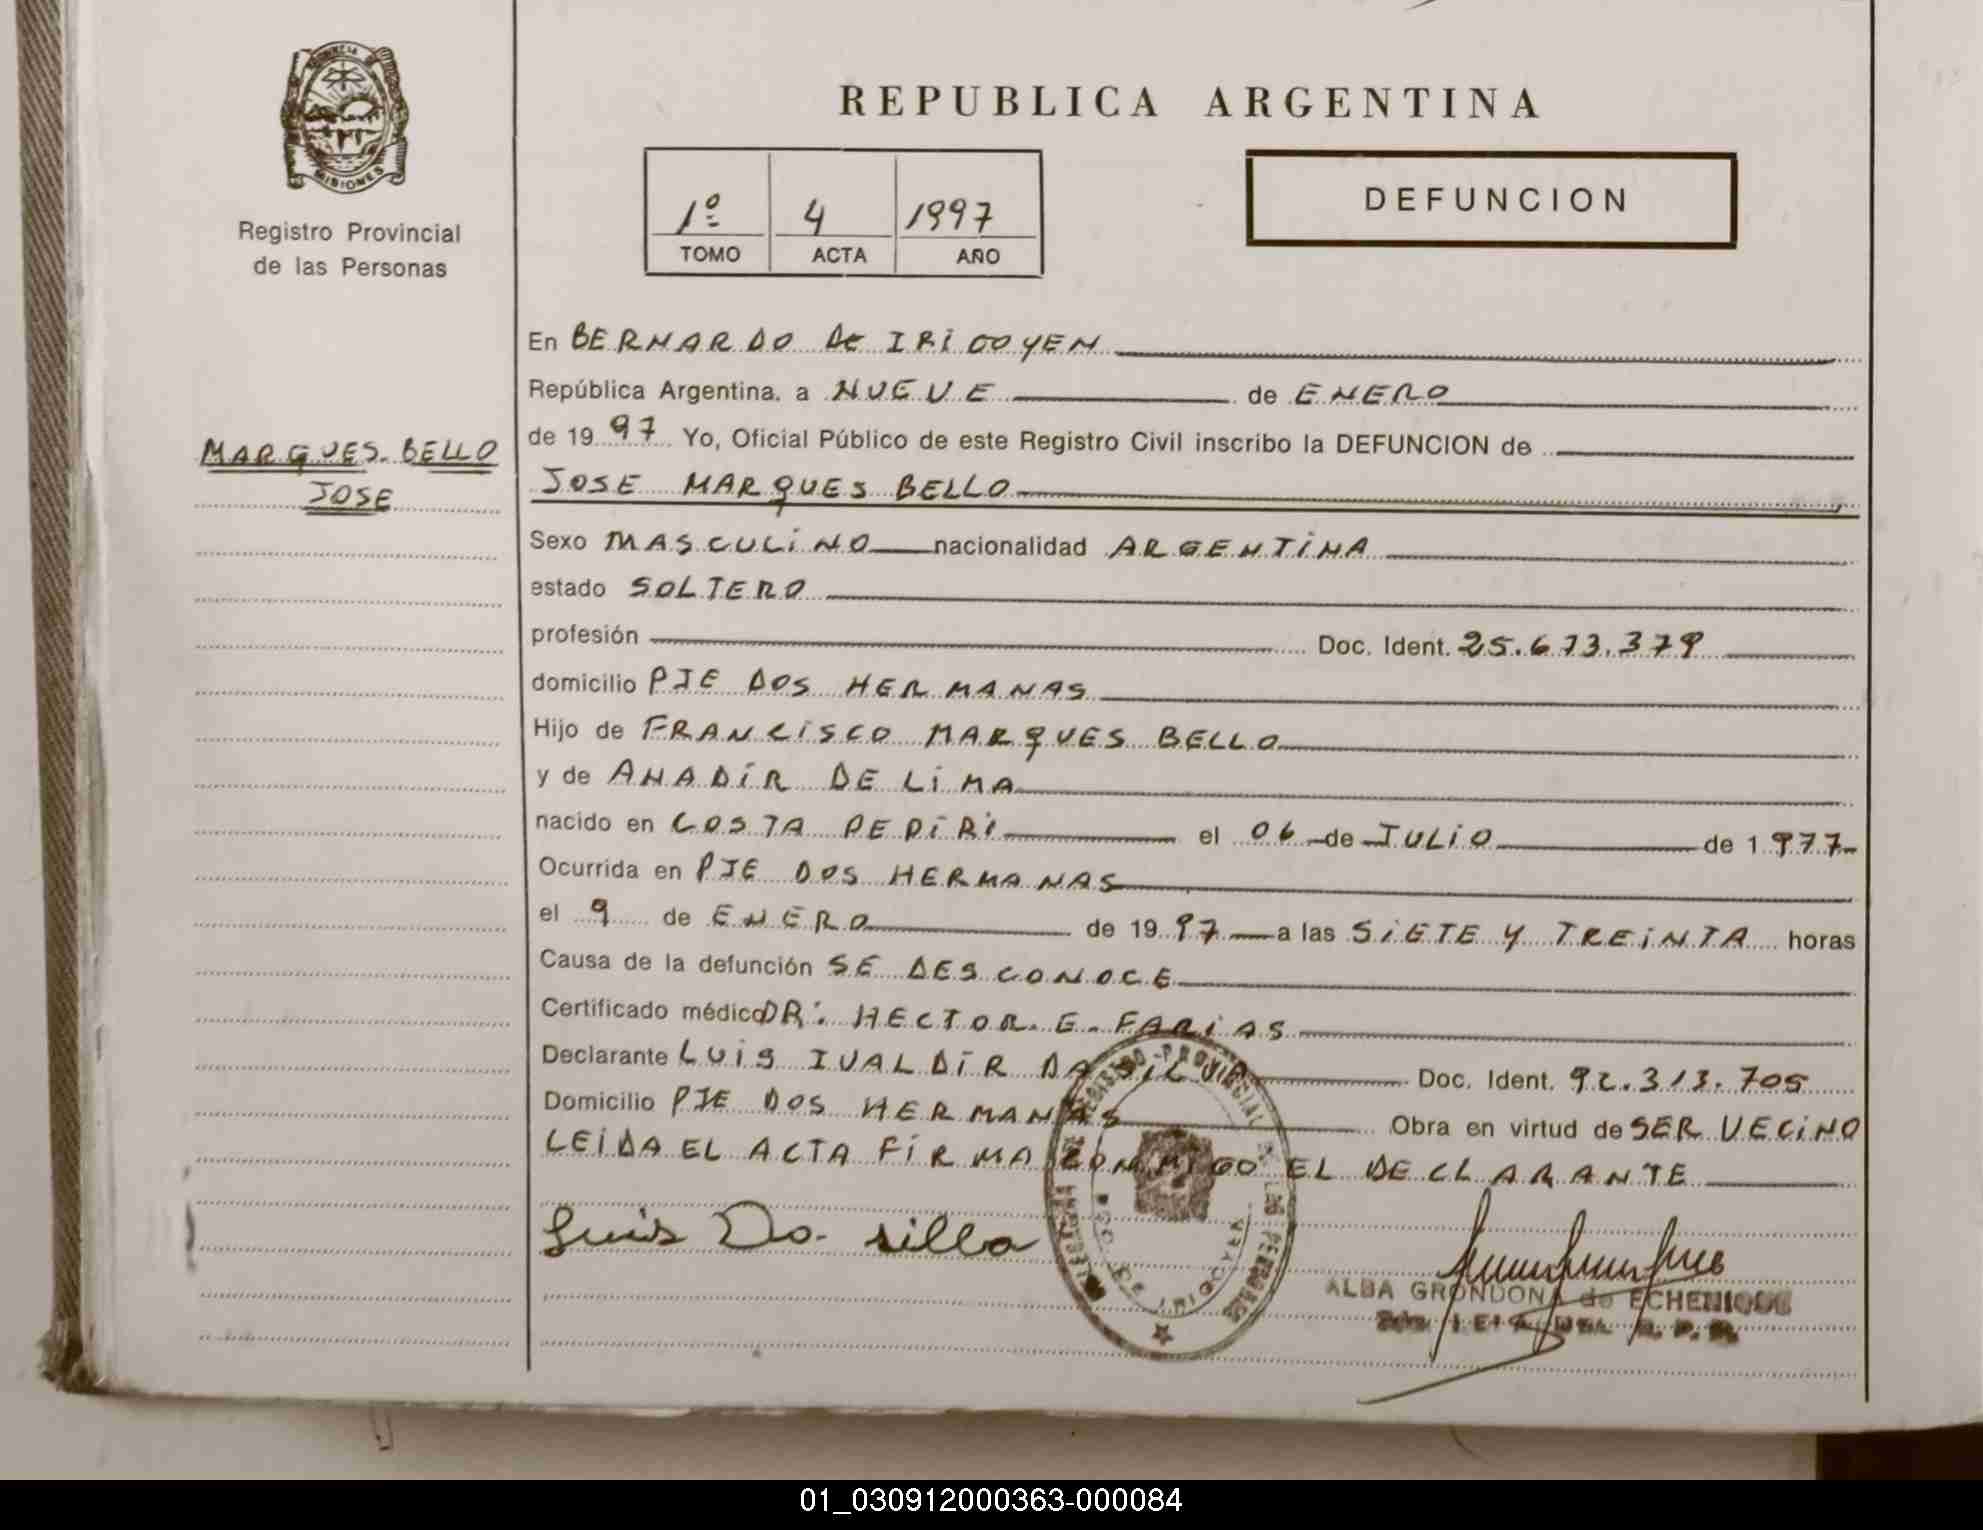 PROVINCIA DE
MISIONES
Registro Provincial
de las Personas
MARQUES BELLO
JOSE
REPUBLICA ARGENTINA
1º 4 1997
TOMO ACTA AÑO
DEFUNCION
En BERNARDO De IRIGOYEN
República Argentina, a NUEVE de ENERO
de 1997 Yo, Oficial Público de este Registro Civil inscribo la DEFUNCION de
JOSE MARQUES BELLO
Sexo MASCULINO nacionalidad ARGENTINA
estado SOLTERO
profesión Doc. Ident. 25.673.379
domicilio PJE DOS HERMANAS
Hijo de FRANCISCO MARQUES BELLO
y de ANADIR DE LIMA
nacido en COSTA PEPIRI el 06 de JULIO de 1977
Ocurrida en PJE DOS HERMANAS
el 9 de ENERO de 1997 a las SIETE Y TREINTA horas
Causa de la defunción SE DESCONOCE
Certificado médico DR: HECTOR E. FARIAS
Declarante LUIS IVALDIR DA SILVA Doc. Ident. 92.313.705
Domicilio PJE DOS HERMANAS Obra en virtud de SER VECINO
LEIDA EL ACTA FIRMA CONMIGO EL DECLARANTE
Luis Da silla
REGISTRO PROVINCIAL DE LAS PERSONAS
BDO. DE IRIGOYEN
ALBA GRONDONA de ECHENIQUE
01_030912000363-000084